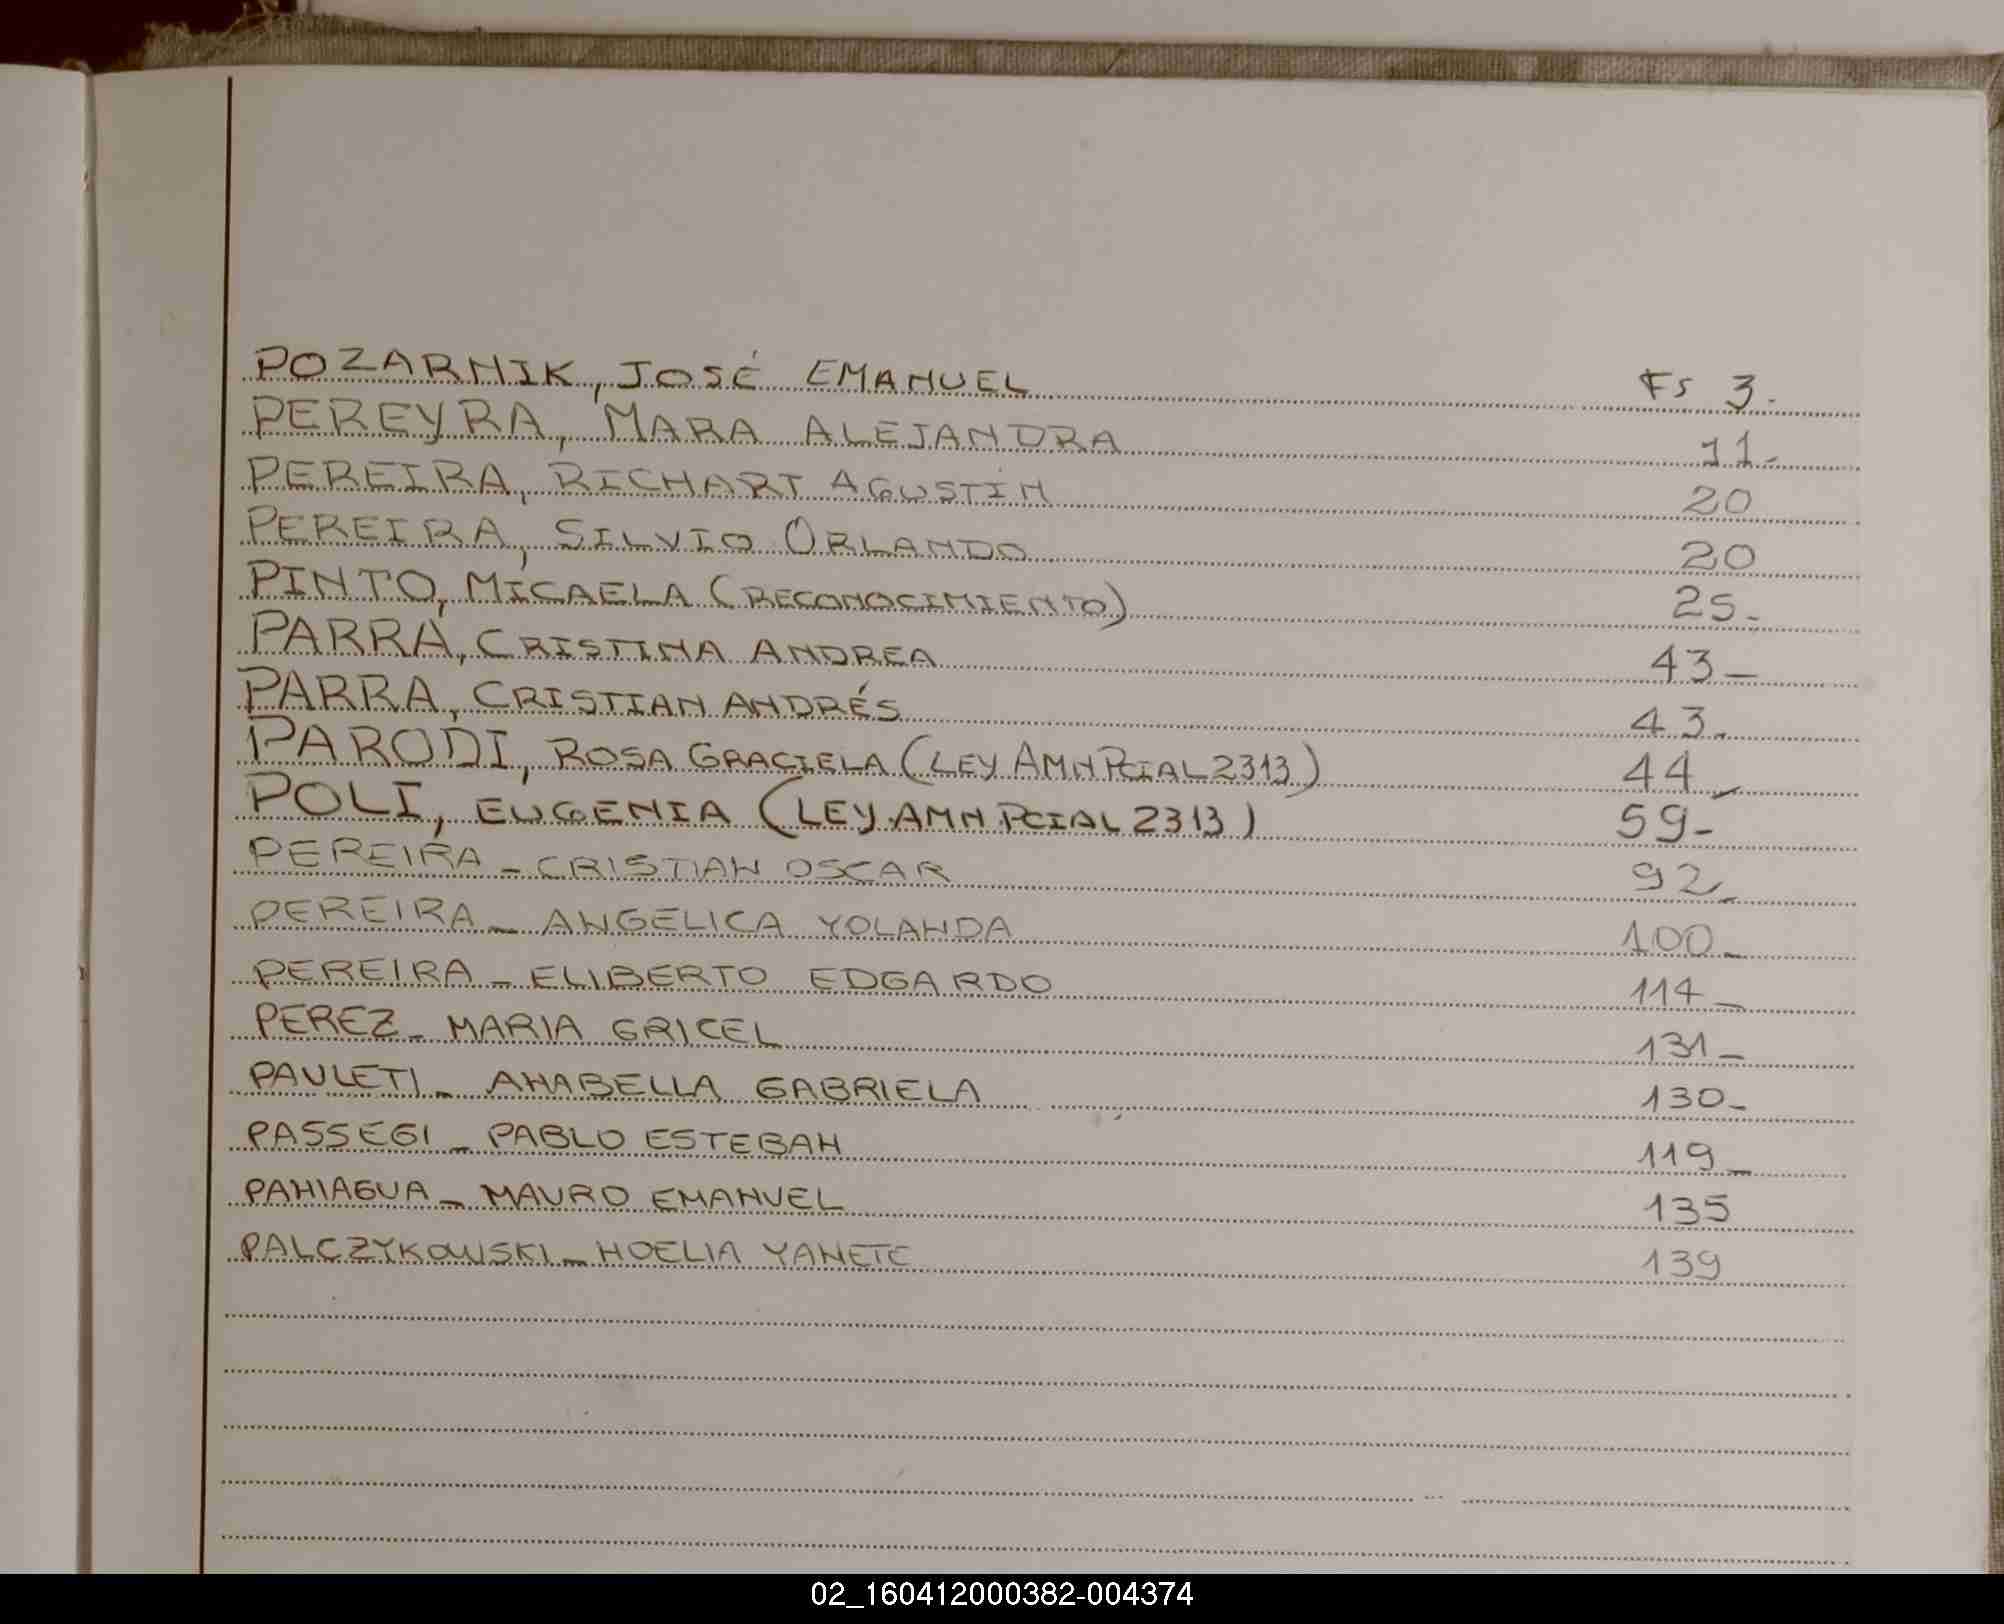 POZARNIK, JOSÉ EMANUEL Fs 3.
PEREYRA, MARA ALEJANDRA 11-
PEREIRA, RICHART AGUSTIN 20
PEREIRA, SILVIO ORLANDO 20
PINTO, MICAELA (RECONOCIMIENTO) 25-
PARRA, CRISTINA ANDREA 43-
PARRA, CRISTIAN ANDRÉS 43.
PARODI, ROSA GRACIELA (LEY AMN PCIAL 2313) 44-
POLI, EUGENIA (LEY AMN PCIAL 2313) 59-
PEREIRA - CRISTIAN OSCAR 92-
PEREIRA - ANGELICA YOLANDA 100-
PEREIRA - ELIBERTO EDGARDO 114-
PEREZ - MARIA GRICEL 131-
PAULETI - ANABELLA GABRIELA 130-
PASSEGI - PABLO ESTEBAN 119-
PANIAGUA - MAURO EMANUEL 135
PALCZYKOWSKI - NOELIA YANETE 139
02_160412000382-004374